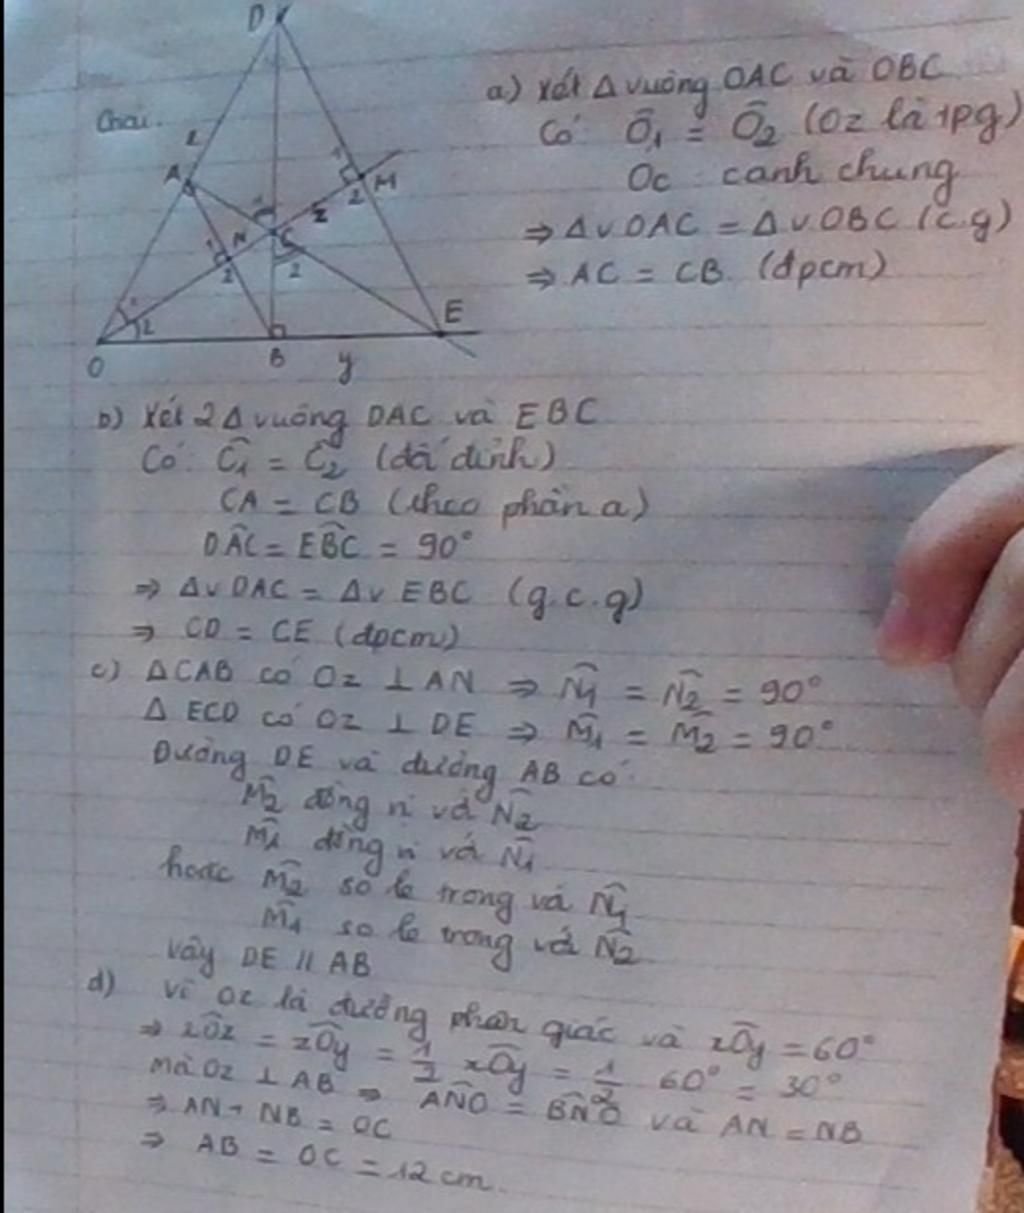 D
A
x
N
M
C
z
O
B
y
E
a) Xét Δ vuông OAC và OBC
Có: Ô1 = Ô2 (Oz là tpg)
Oc : canh chung
⇒ Δv OAC = Δv OBC (c.g)
⇒ AC = CB. (đpcm)
b) Xét 2 Δ vuông DAC và EBC
Có: Ĉ1 = Ĉ2 (đđ đỉnh)
CA = CB (theo phần a)
DÂC = EB̂C = 90°
⇒ Δv DAC = Δv EBC (g.c.g)
⇒ CD = CE (đpcm)
c) Δ CAB có Oz ⊥ AN ⇒ N̂1 = N̂2 = 90°
Δ ECD có Oz ⊥ DE ⇒ M̂1 = M̂2 = 90°
Đường DE và đường AB có:
M̂2 đồng vị với N̂2
M̂1 đồng vị với N̂1
hoặc M̂2 so le trong và N̂1
M̂1 so le trong với N̂2
Vậy DE // AB
d) Vì Oz là đường phân giác và xÔy = 60°
⇒ xÔz = zÔy = 1/2 xÔy = 1/2 60° = 30°
mà Oz ⊥ AB ⇒ AN̂O = BN̂O và AN = NB
⇒ AN + NB = OC
⇒ AB = OC = 12 cm.